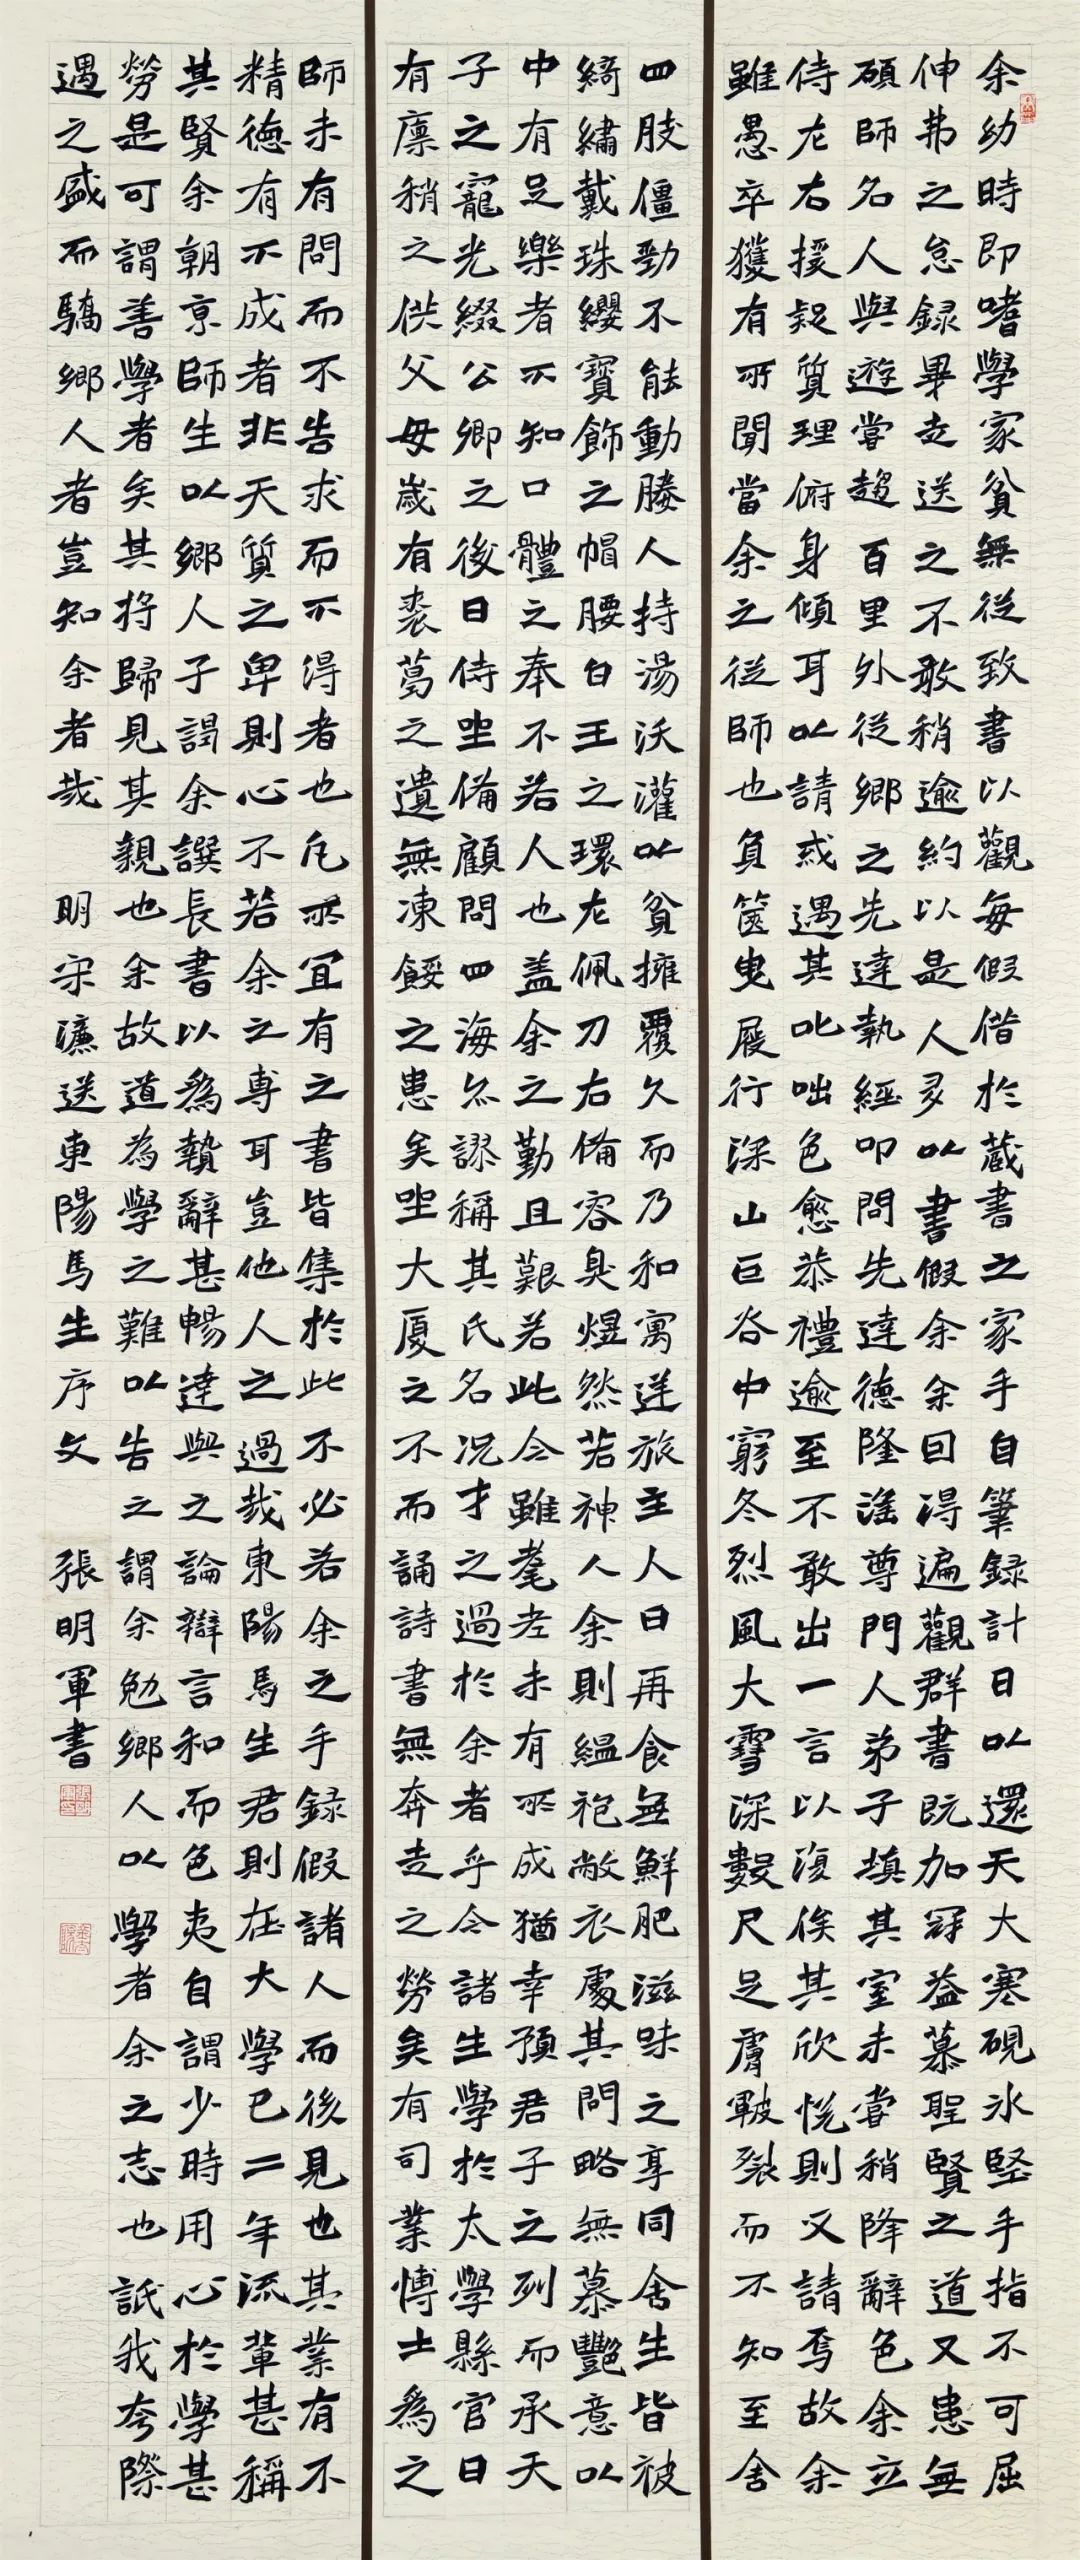 余幼時即嗜學家貧無從致書以觀每假借於藏書之家手自筆録計日以還天大寒硯冰堅手指不可屈
伸弗之怠録畢走送之不敢稍逾約以是人多以書假余余回得遍觀群書既加冠益慕聖賢之道又患無
碩師名人與遊嘗趨百里外從鄉之先達執經叩問先達德隆望尊門人弟子填其室未嘗稍降辭色余立
侍左右援疑質理俯身傾耳以請或遇其叱咄色愈恭禮逾至不敢出一言以復俟其欣悅則又請焉故余
雖愚卒獲有所聞當余之從師也負篋曳屐行深山巨谷中窮冬烈風大雪深數尺足膚皸裂而不知至舍
四肢僵勁不能動媵人持湯沃灌以貧擁覆久而乃和寓逆旅主人日再食無鮮肥滋味之享同舍生皆被
綺繡戴珠纓寶飾之帽腰白玉之環左佩刀右備容臭煜然若神人余則縕袍敝衣處其間略無慕艷意以
中有足樂者不知口體之奉不若人也蓋余之勤且艱若此今雖耄老未有所成猶幸預君子之列而承天
子之寵光綴公卿之後日侍坐備顧問四海亦謬稱其氏名況才之過於余者乎今諸生學於太學縣官日
有廩稍之供父母歲有裘葛之遺無凍餒之患矣坐大厦之不而誦詩書無奔走之勞矣有司業博士為之
師未有問而不告求而不得者也凡所宜有之書皆集於此不必若余之手録假諸人而後見也其業有不
精德有不成者非天質之卑則心不若余之專耳豈他人之過哉東陽馬生君則在大學已二年流輩甚稱
其賢余朝京師生以鄉人子謁余譔長書以為贄辭甚暢達與之論辯言和而色夷自謂少時用心於學甚
勞是可謂善學者矣其將歸見其親也余故道為學之難以告之謂余勉鄉人以學者余之志也詆我夸際
遇之盛而驕鄉人者豈知余者哉 明宋濂送東陽馬生序文 張明軍書